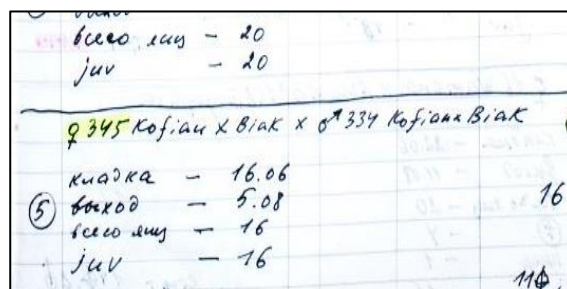 всего яиц – 20
juv – 20
♀345 Kofiau x Biak x ♂334 Kofiau x Biak
кладка – 16.06
⑤ выход – 5.08 16
всего яиц – 16
juv – 16